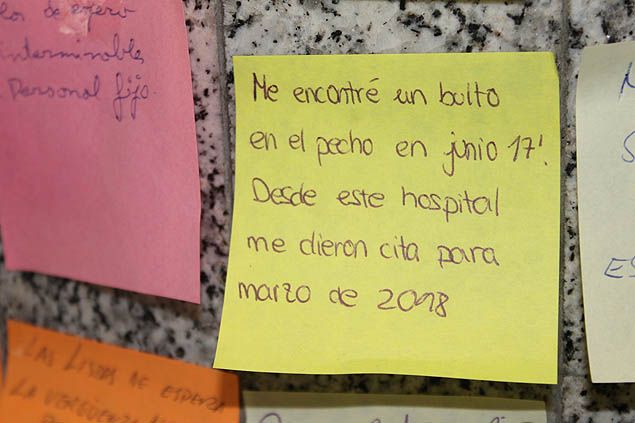 de espera
interminables
Personal fijo.
Me encontré un bulto
en el pecho en junio 17'.
Desde este hospital
me dieron cita para
marzo de 2018
ES
LAS LISTAS DE ESPERA
LA VERGÜENZA